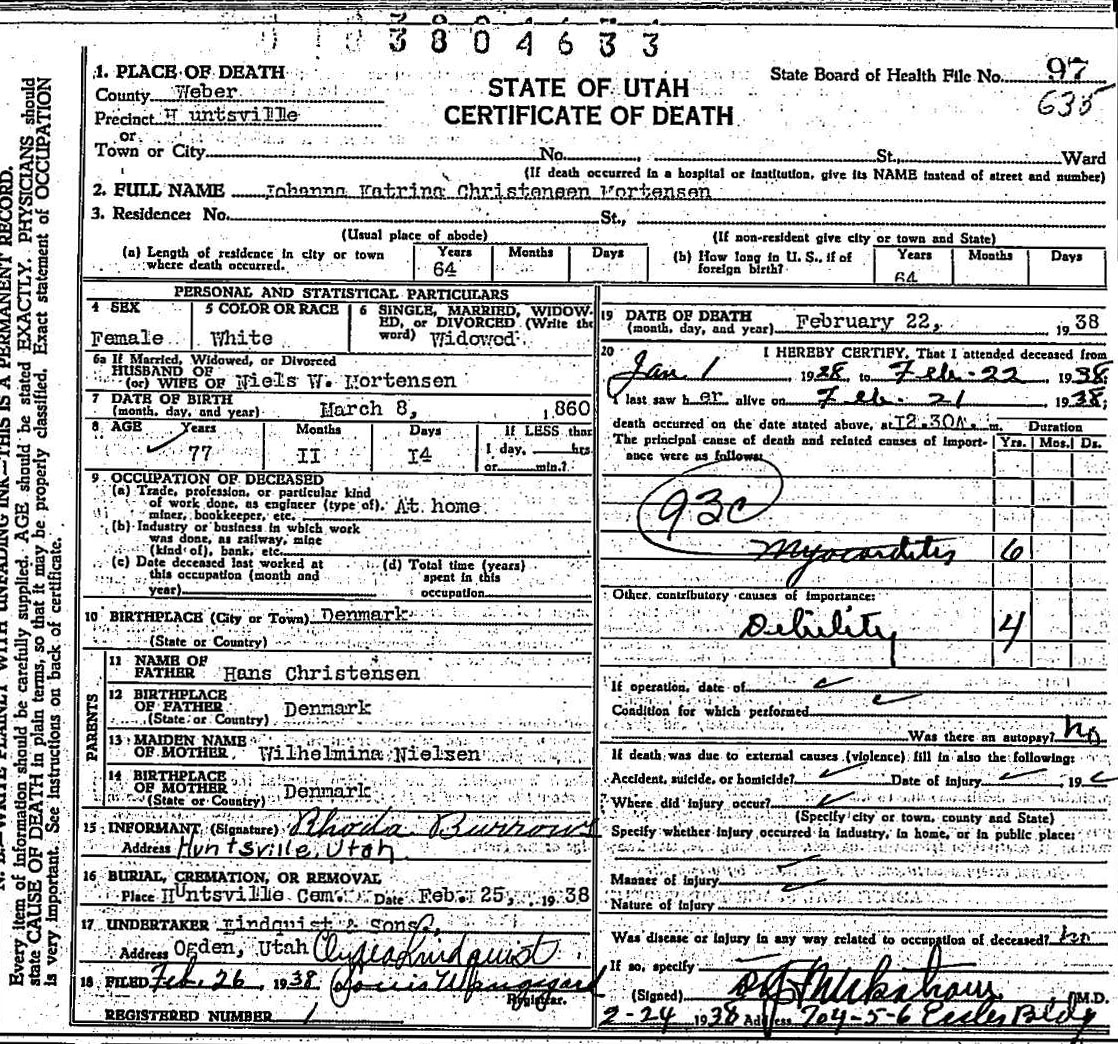 3 8 0 4 6 3 3
1. PLACE OF DEATH
County Weber
Precinct Huntsville
or
Town or City No. St., Ward
STATE OF UTAH
CERTIFICATE OF DEATH
State Board of Health File No. 97
635
(If death occurred in a hospital or institution, give its NAME instead of street and number)
2. FULL NAME Johanna Katrina Christensen Mortensen
3. Residence: No. St.,
(Usual place of abode) (If non-resident give city or town and State)
(a) Length of residence in city or town where death occurred. Years 64 Months Days
(b) How long in U. S., if of foreign birth? Years 64 Months Days
PERSONAL AND STATISTICAL PARTICULARS
4 SEX Female
5 COLOR OR RACE White
6 SINGLE, MARRIED, WIDOWED, or DIVORCED (Write the word) Widowed
6a If Married, Widowed, or Divorced
HUSBAND OF
(or) WIFE OF Niels W. Mortensen
7 DATE OF BIRTH
(month, day, and year) March 8, 1860
8 AGE Years 77 Months II Days I4 If LESS than 1 day, hrs or min.?
9 OCCUPATION OF DECEASED
(a) Trade, profession, or particular kind
of work done, as engineer (type of), At home
miner, bookkeeper, etc.
(b) Industry or business in which work
was done, as railway, mine
(kind of), bank, etc.
(c) Date deceased last worked at
this occupation (month and
year)
(d) Total time (years)
spent in this
occupation
10 BIRTHPLACE (City or Town) Denmark
(State or Country)
PARENTS
11 NAME OF
FATHER Hans Christensen
12 BIRTHPLACE
OF FATHER Denmark
(State or Country)
13 MAIDEN NAME
OF MOTHER Wilhelmina Nielsen
14 BIRTHPLACE
OF MOTHER Denmark
(State or Country)
15 INFORMANT (Signature) Rhoda Burrows
Address Huntsville, Utah
16 BURIAL, CREMATION, OR REMOVAL
Place Huntsville Cem. Date Feb. 25, 1938
17 UNDERTAKER Lindquist & Sons
Address Ogden, Utah Clyde Lindquist
18 FILED Feb. 26 1938 Louis
Registrar.
REGISTERED NUMBER 1
19 DATE OF DEATH
(month, day, and year) February 22, 1938
20 I HEREBY CERTIFY, That I attended deceased from
Jan 1 1928, to Feb-22 1938;
I last saw her alive on Feb. 21 1938;
death occurred on the date stated above, at I2.30A. m. Duration
The principal cause of death and related causes of importance were as follows: Yrs. Mos. Ds.
93c
Myocarditis 6
Other contributory causes of importance:
Debility 4
If operation, date of
Condition for which performed
Was there an autopsy? no
If death was due to external causes (violence) fill in also the following:
Accident, suicide, or homicide? Date of injury 19
Where did injury occur?
(Specify city or town, county and State)
Specify whether injury occurred in industry, in home, or in public place:
Manner of injury
Nature of injury
Was disease or injury in any way related to occupation of deceased? no
If so, specify
(Signed) M.D.
2-24 1938 Address 704-5-6 Eccles Bldg
N. B.—WRITE PLAINLY WITH UNFADING INK—THIS IS A PERMANENT RECORD.
Every item of information should be carefully supplied. AGE should be stated EXACTLY. PHYSICIANS should
state CAUSE OF DEATH in plain terms, so that it may be properly classified. Exact statement of OCCUPATION
is very important. See instructions on back of certificate.